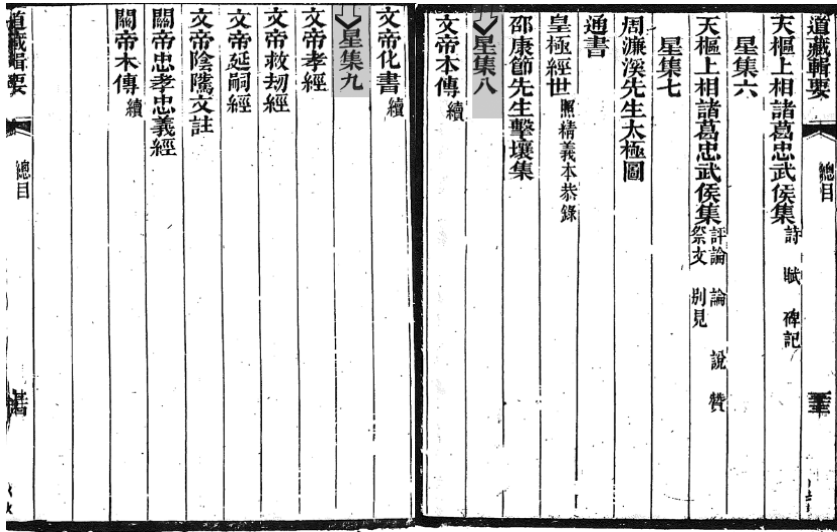 道藏輯要 總目
天樞上相諸葛忠武侯集 詩 賦 碑記
星集六
天樞上相諸葛忠武侯集 評論 論 說 贊 祭文 别見
星集七
周濂溪先生太極圖
通書
皇極經世 照精義本恭錄
邵康節先生擊壤集
星集八
文帝本傳 續
文帝化書 續
星集九
文帝孝經
文帝救劫經
文帝延嗣經
文帝陰隲文註
關帝忠孝忠義經
關帝本傳 續
道藏輯要 總目